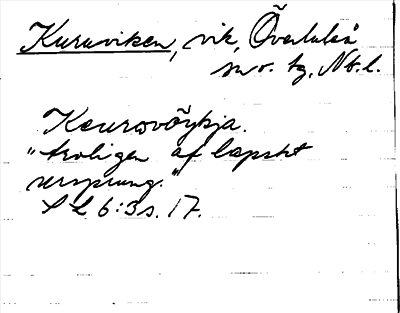 Kuruviken, vik, Överluleå
sn o. tg, Nb. l.
Keurovöykja.
"troligen af lapskt
ursprung."
SL 6:3 s. 17.